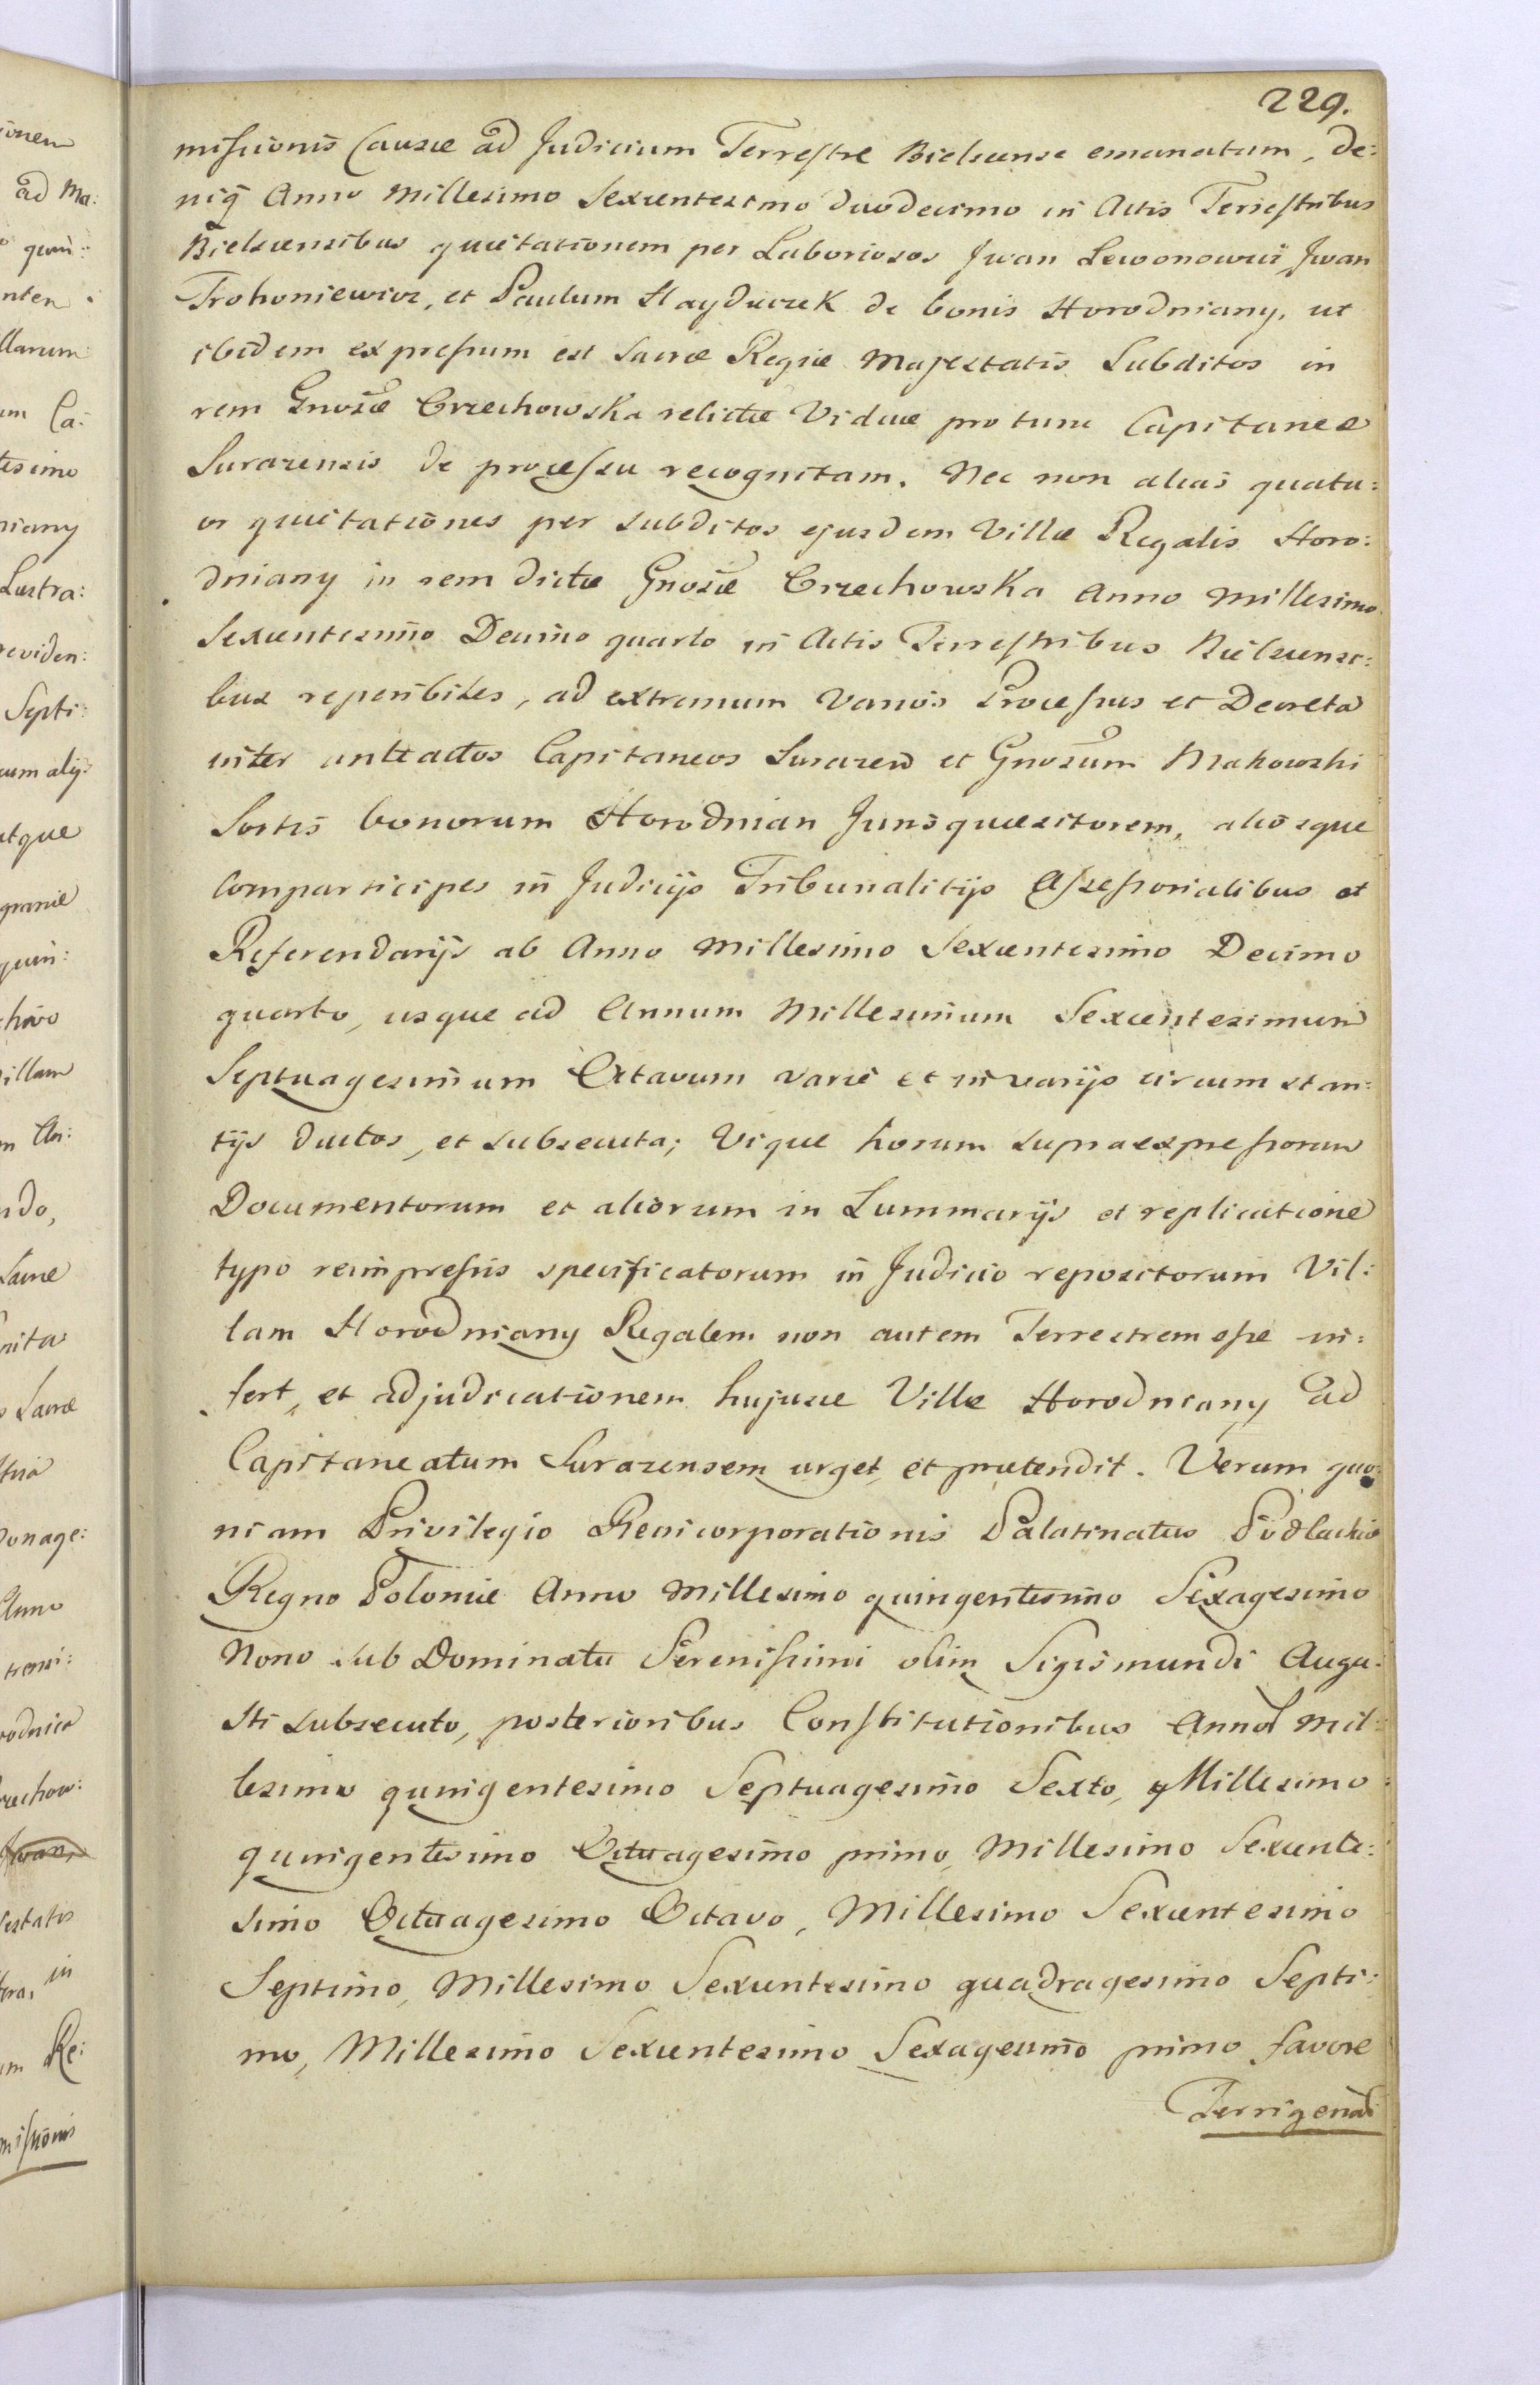 229.
missionis Causæ ad Judicium Terrestre Bielscense emanatum, de:
niq̃ Anno Millesimo Sexcentesimo duodecimo in Actis Terrestribus
Bielscensibus quietationem per Laboriosos Jwan Lewonowicz Jwan
Trohoniewicz, et Paulum Hayduczek de bonis Horodniany, ut
ibidem expressum est Sacræ Regiæ Majestatis Subditos in
rem Gnosæ Orzechowska relictæ Viduæ pro tunc Capitaneæ
Surazensis de processu recognitam. Nec non alias quatu:
or quietationes per subditos ejusdem Villæ Regalis Horo:
dniany in rem dictæ Gnosæ Orzechowska Anno Millesimo
Sexcentesimo Decimo quarto in Actis Terrestribus Bielscensi:
bus reperibiles, ad extremum varios Processus et Decreta
inter anteactos Capitaneos Surazen et Gnosum Makowski
Sortis bonorum Horodnian Jurisquæsitorem, aliosque
Comparticipes in Judicijs Tribunalitijs Assessorialibus et
Referendarijs ab Anno Millesimo Sexcentesimo Decimo
quarto, usque ad Annum Millesimum Sexcentesimum
Septuagesimum Octavum varie et in varijs circum stan:
tijs ductos, et subsecuta; Vique horum supraexpressorum
Documentorum et aliorum in Summarijs et replicatione
typo reimpressis specificatorum in Judicio repositorum Vil:
lam Horodniany Regalem non autem Terrestrem esse in:
fert, et adjudicationem hujusce Villæ Horodniany ad
Capitaneatum Surazensem urget, et prætendit. Verum quo:
niam Privilegio Reincorporationis Palatinatus Podlachiæ
Regno Poloniæ Anno Millesimo quingentesimo Sexagesimo
Nono sub Dominatu Serenissimi olim Sigismundi Augu:
sti subsecuto, posterioribus Constitutionibus Anno Mil:
lesimo quingentesimo Septuagesimo Sexto, Millesimo
quingentesimo Octuagesimo primo, Millesimo Sexcente:
simo Octuagesimo Octavo, Millesimo Sexcentesimo
Septimo, Millesimo Sexcentesimo quadragesimo Septi:
mo, Millesimo Sexcentesimo Sexagesimo primo favore
Terrigenar